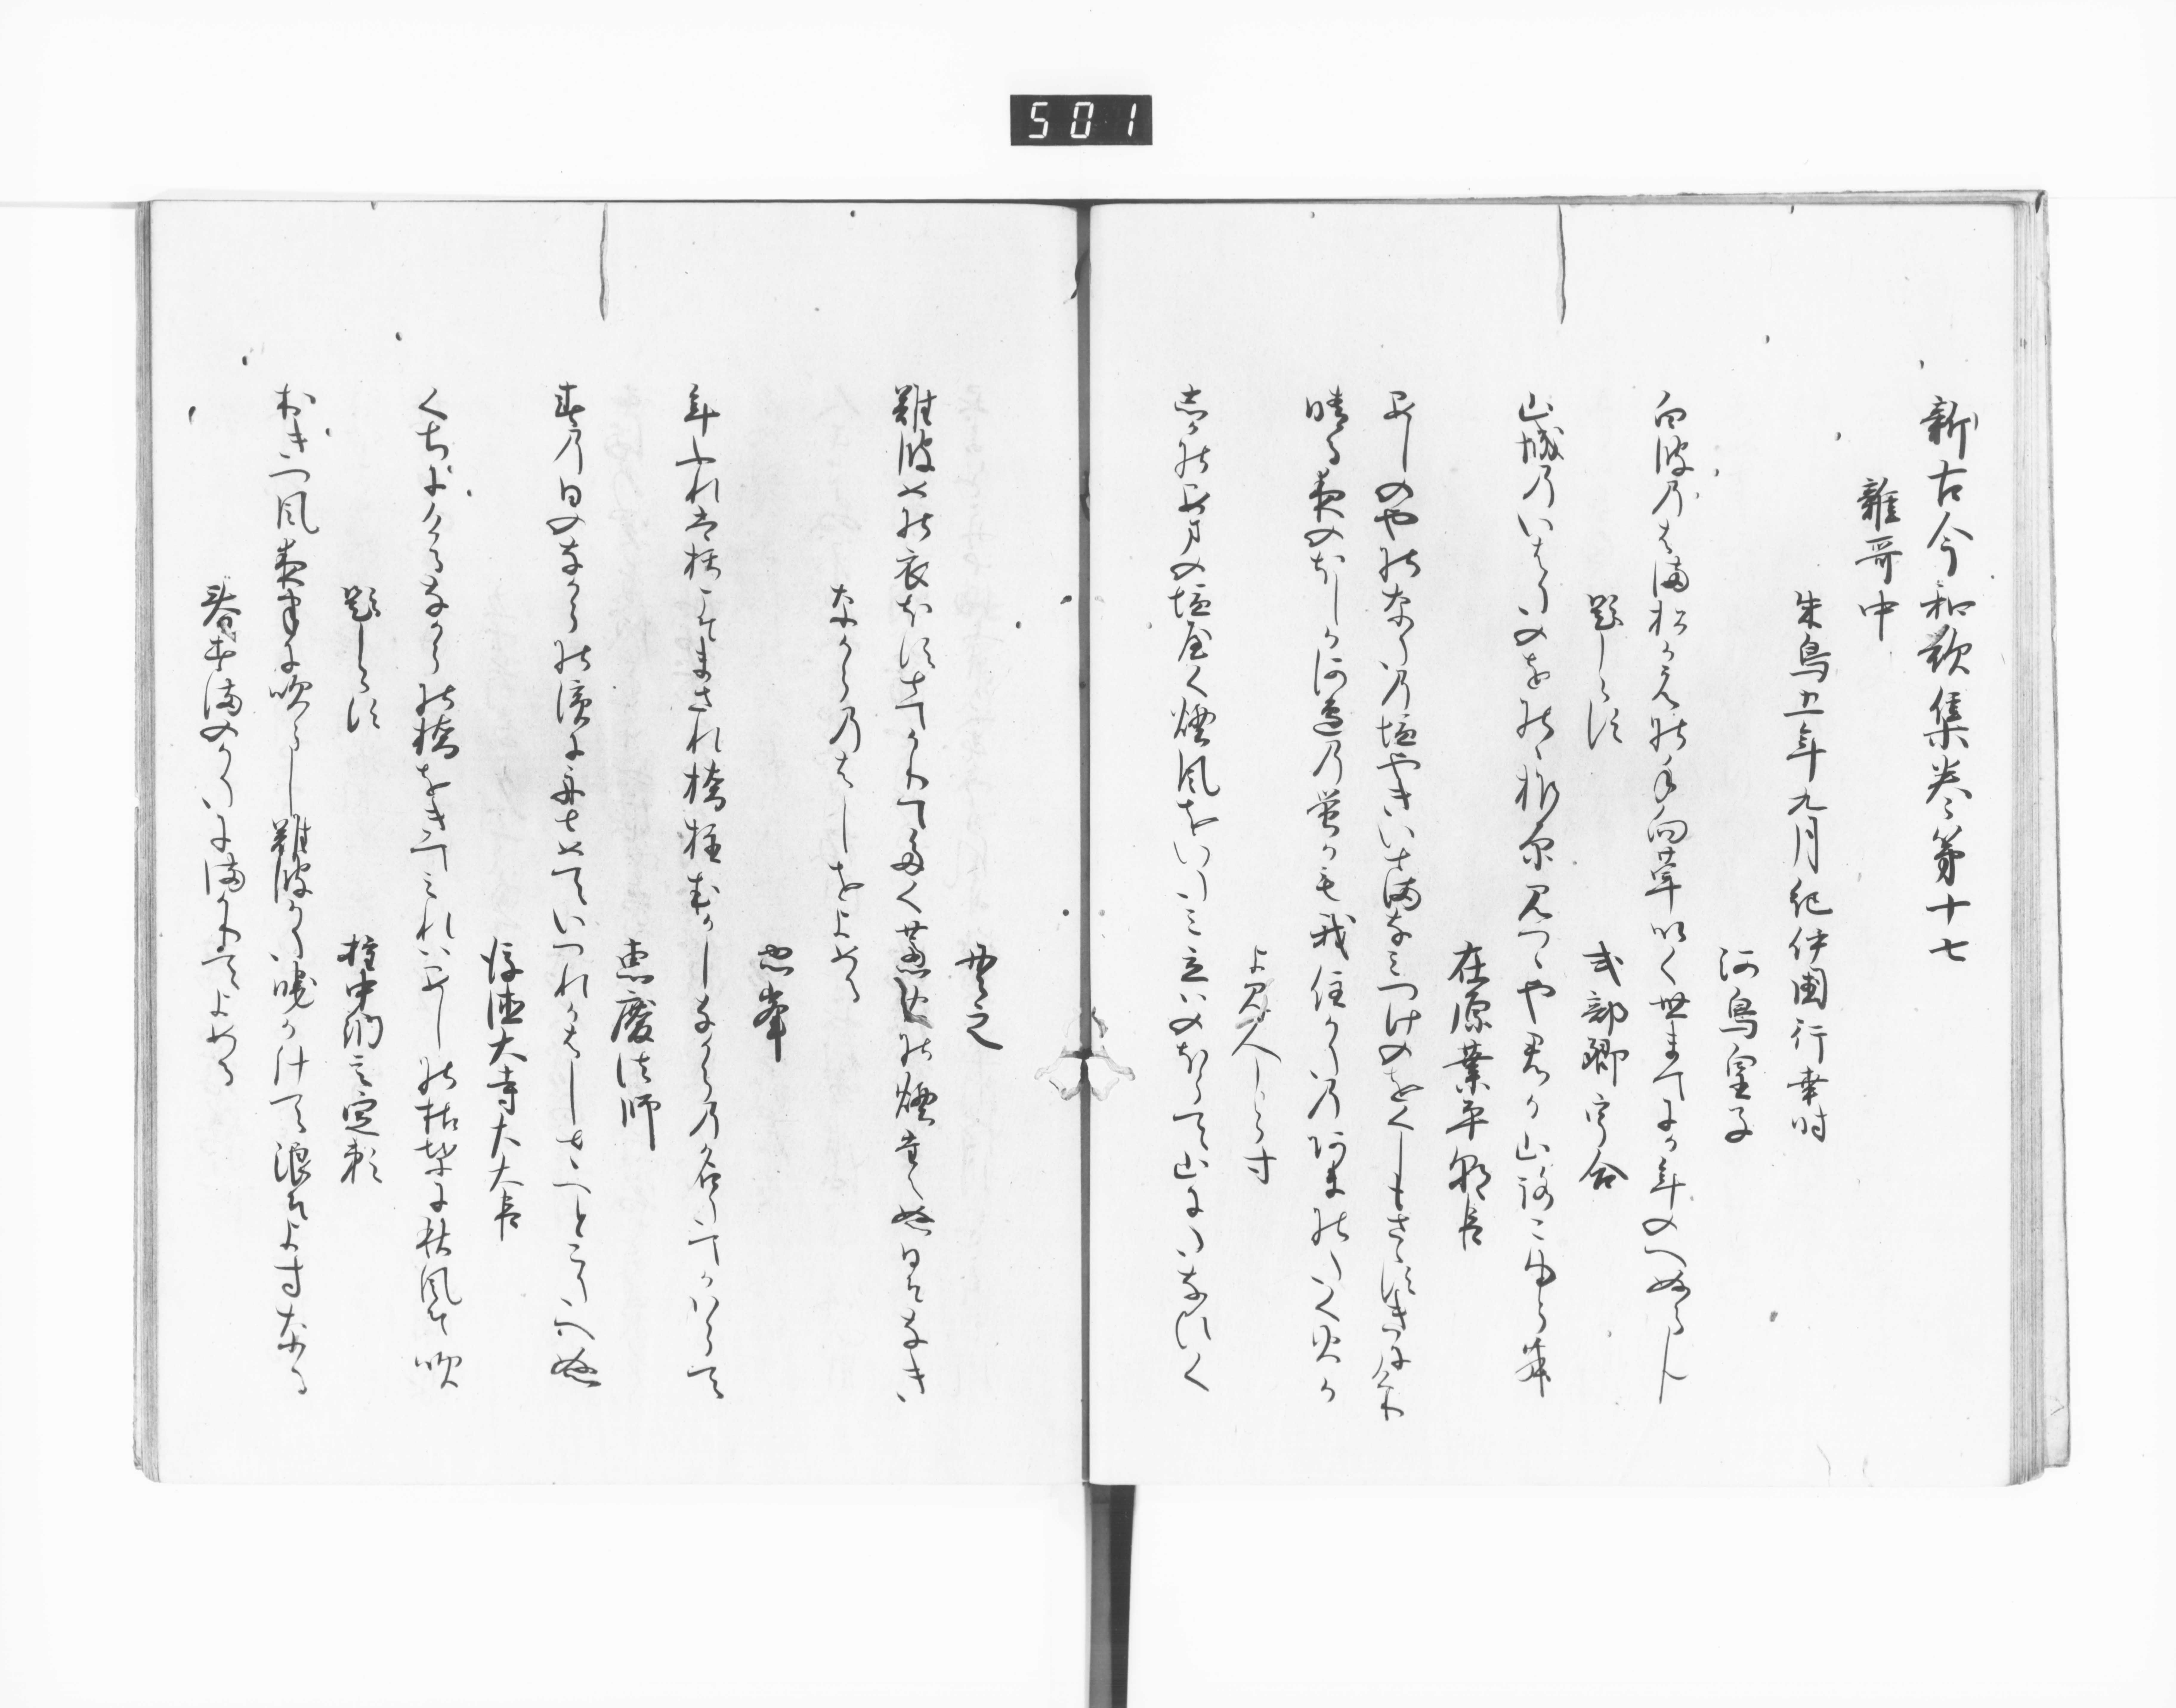 501
新古今和歌集巻第十七
雑哥中
朱鳥五年九月紀伊国行幸時
河島皇子
白波乃はま松かえの手向草いく世まてにか年のへぬらん
題しらす
式部卿宇合
山城乃いはたのをのゝ柞原見つゝや君か山路こゆらむ
在原業平朝臣
あしのやのなたの塩やきいとまなみつけのをくしもさゝすきにけり
晴る夜のほしか河辺乃蛍かも我住かたのあまのたく火か
よみ人しらす
しかのあまの塩屋く煙風をいたみ立はのほらて山にたなひく
貫之
難波女の衣ほすとてかりてたく蘆火の煙立ぬ日そなき
なからのはしをよめる
忠岑
年ふれは朽こそまされ橋柱むかしなからの名たにかはらて
恵慶法師
春の日のなからの濱に舟とめていつれかはしととへとこたへぬ
後徳大寺左大臣
くちにけるなからの橋をきてみれはあしの枯葉に秋風そ吹
題しらす
権中納言定頼
おきつ風夜半に吹らし難波かた暁かけて浪そよすなる
春すまのかたにまかりてよめる